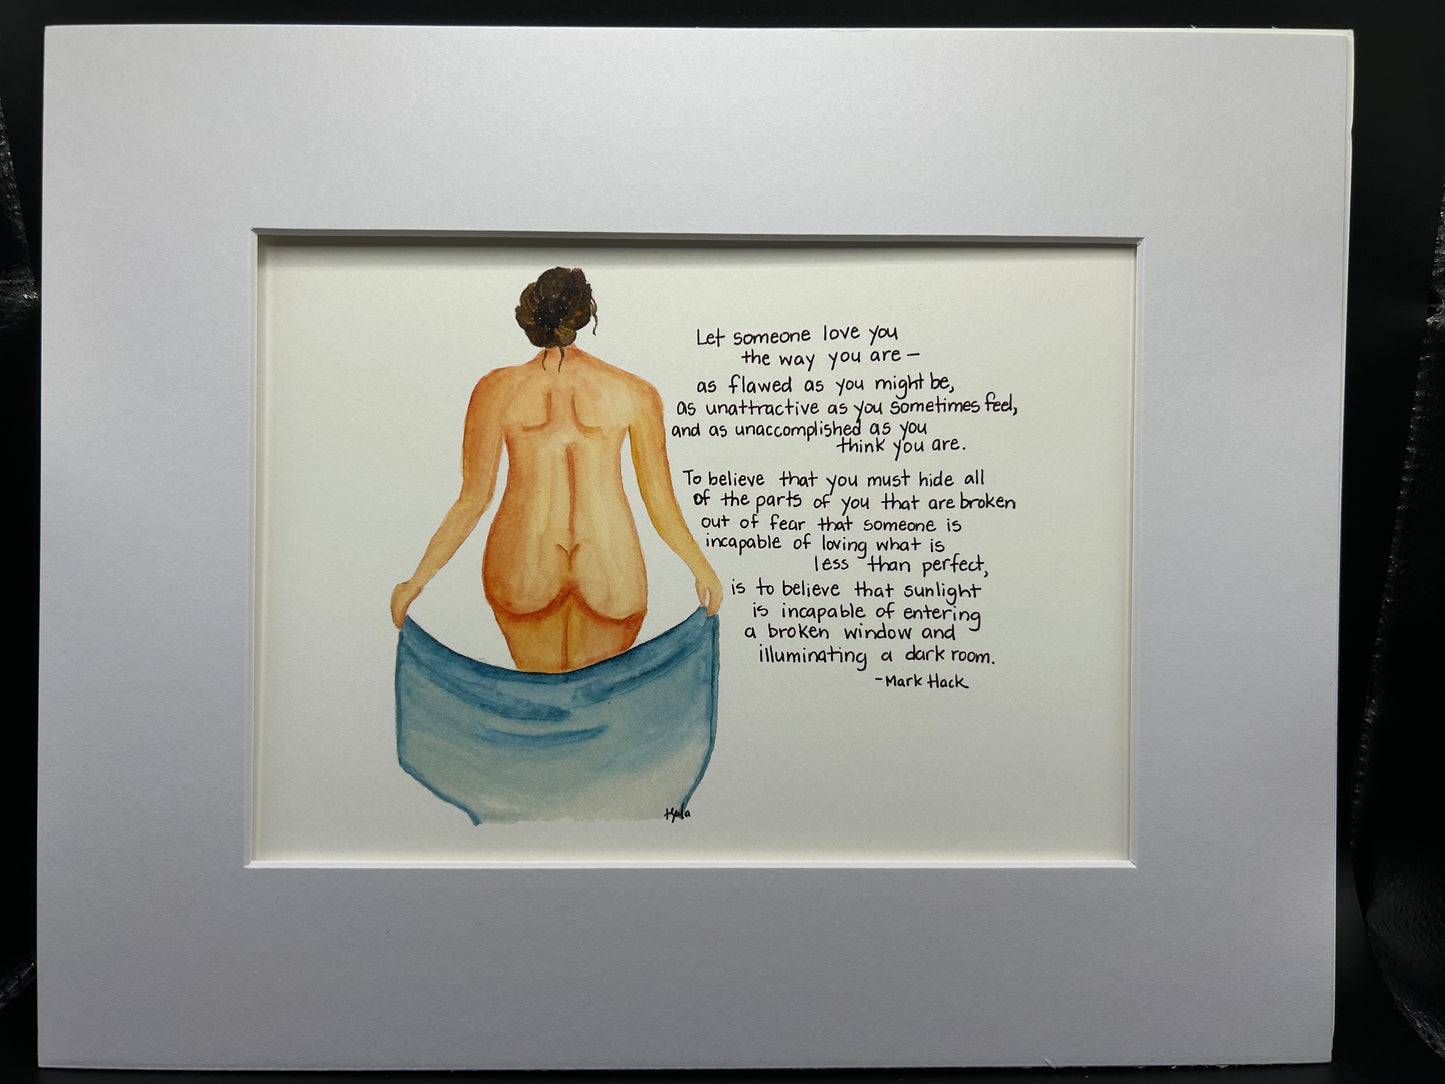 Let someone love you
the way you are —
as flawed as you might be,
as unattractive as you sometimes feel,
and as unaccomplished as you
think you are.
To believe that you must hide all
of the parts of you that are broken
out of fear that someone is
incapable of loving what is
less than perfect,
is to believe that sunlight
is incapable of entering
a broken window and
illuminating a dark room.
-Mark Hack